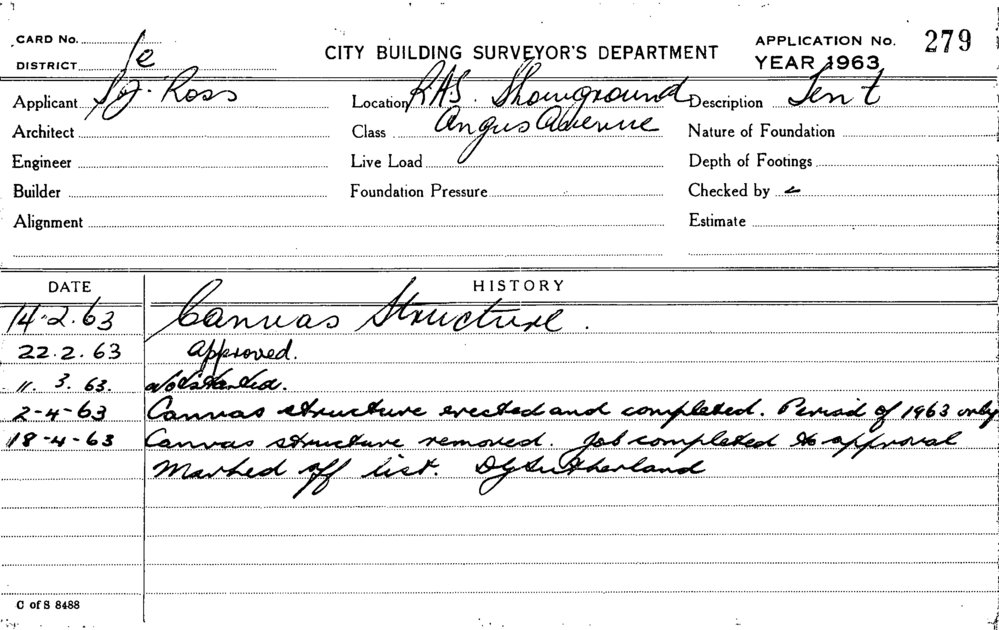 CARD No.
DISTRICT 1e
CITY BUILDING SURVEYOR'S DEPARTMENT
APPLICATION No. 279
YEAR 1963
Applicant Ross
Location R.A.S. Showground
Description Tent
Architect
Class Angus Avenue
Nature of Foundation
Engineer
Live Load
Depth of Footings
Builder
Foundation Pressure
Checked by
Alignment
Estimate
DATE HISTORY
14-2.63 Canvas Structure.
22.2.63 Approved.
11.3.63. Not started.
2-4-63 Canvas structure erected and completed. Period of 1963 only
18-4-63 Canvas structure removed. Job completed to approval
Marked off list. DG Sutherland
C of S 8488